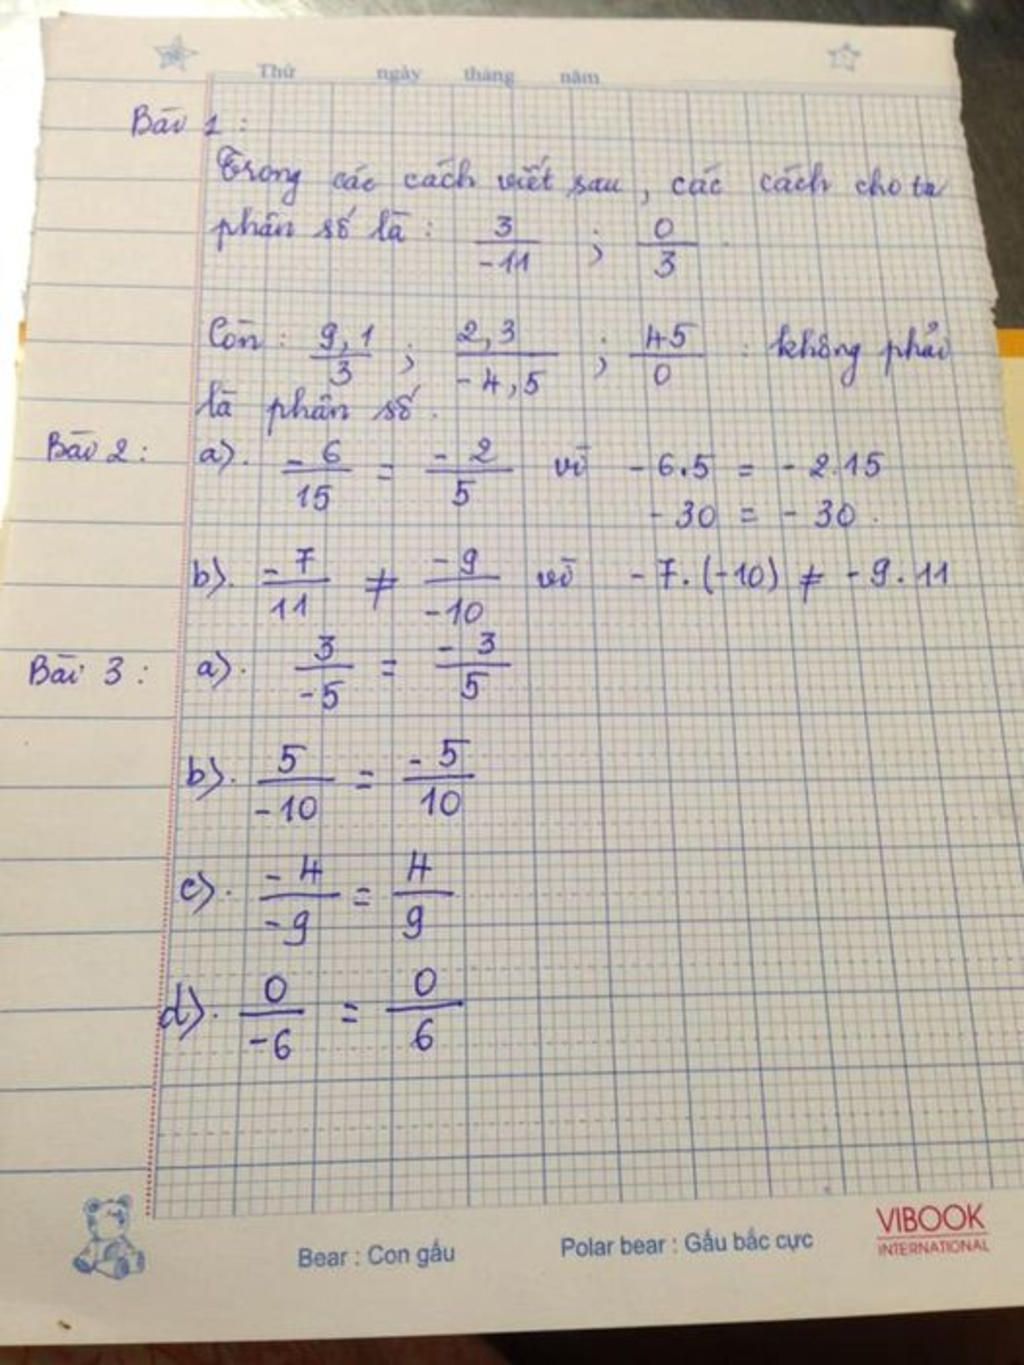 Thứ ngày tháng năm
Bài 1:
Trong các cách viết sau, các cách cho ta
phân số là: 3/-11 ; 0/3.
Còn: 9,1/3 ; 2,3/-4,5 ; 45/0 : không phải
là phân số.
Bài 2: a). -6/15 = -2/5 vì -6.5 = -2.15
-30 = -30.
b). -7/11 ≠ -9/-10 vì -7.(-10) ≠ -9.11
Bài 3: a). 3/-5 = -3/5
b). 5/-10 = -5/10
c). -4/-9 = 4/9
d). 0/-6 = 0/6
Bear : Con gấu Polar bear : Gấu bắc cực VIBOOK
INTERNATIONAL